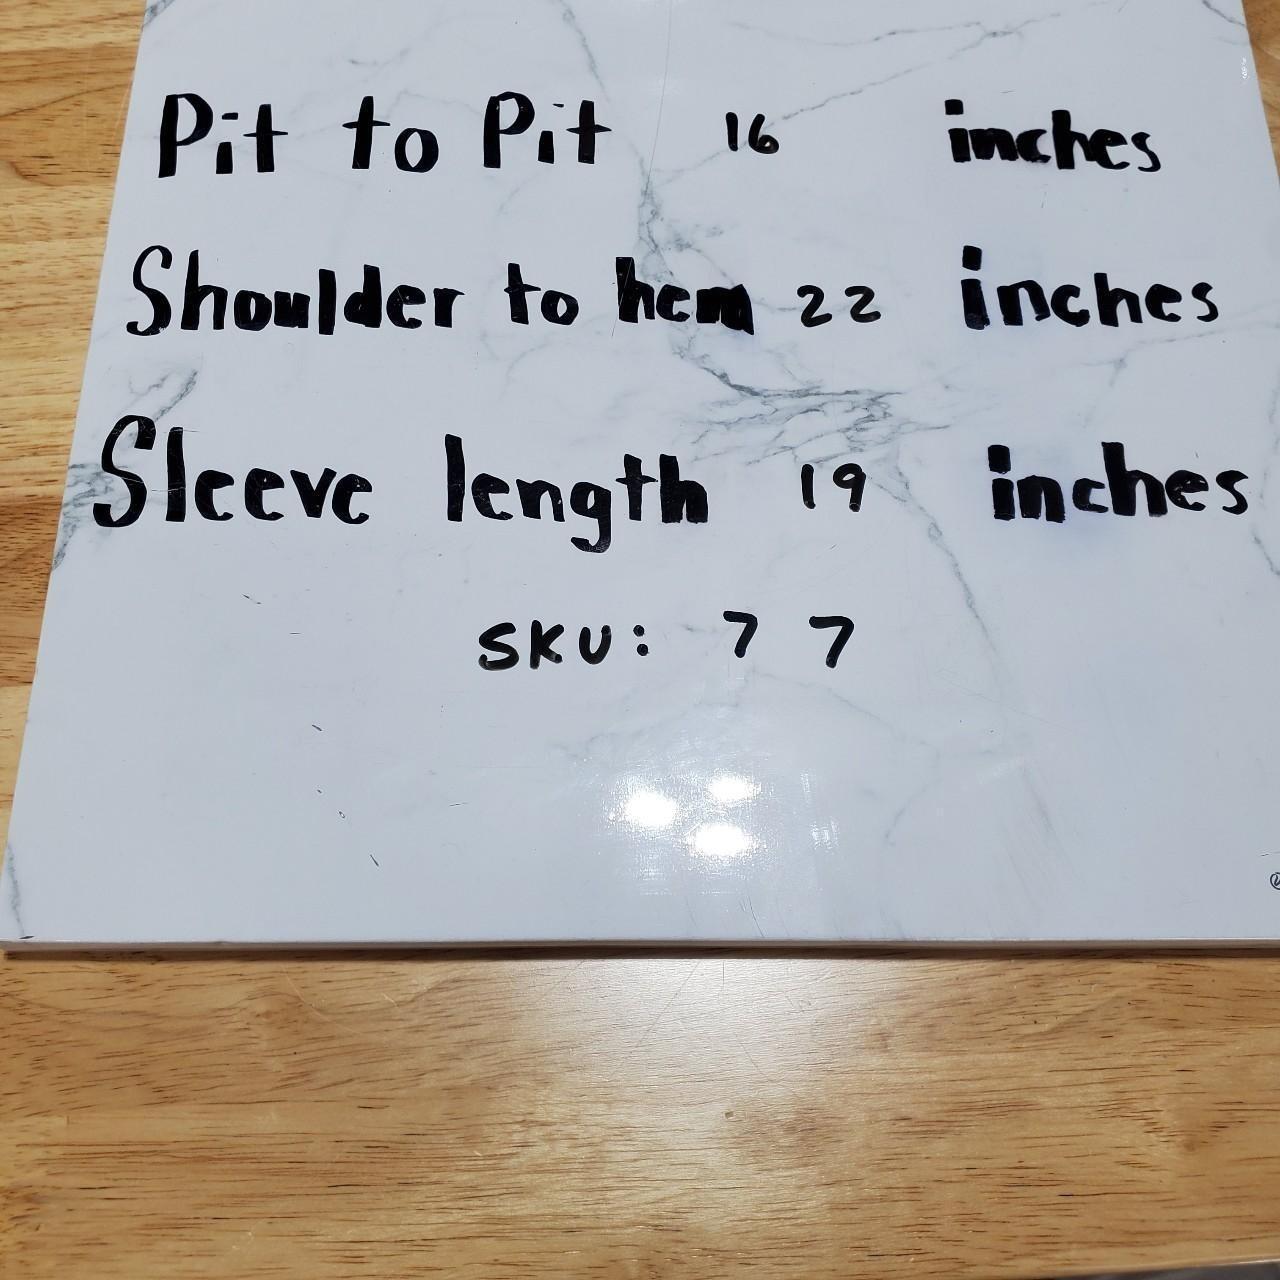 Pit to Pit 16 inches
Shoulder to hem 22 inches
Sleeve length 19 inches
SKU: 77